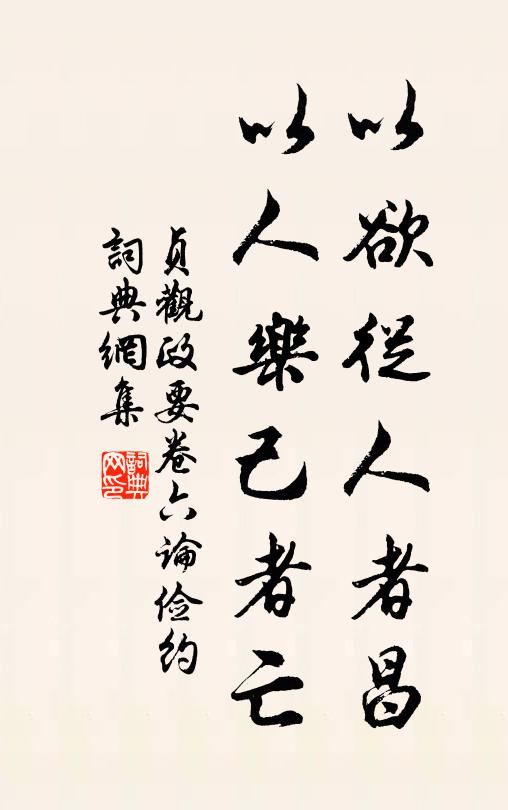 以欲從人者昌
以人樂己者亡
貞觀政要卷六论俭约
詞典網集
詞典
网印